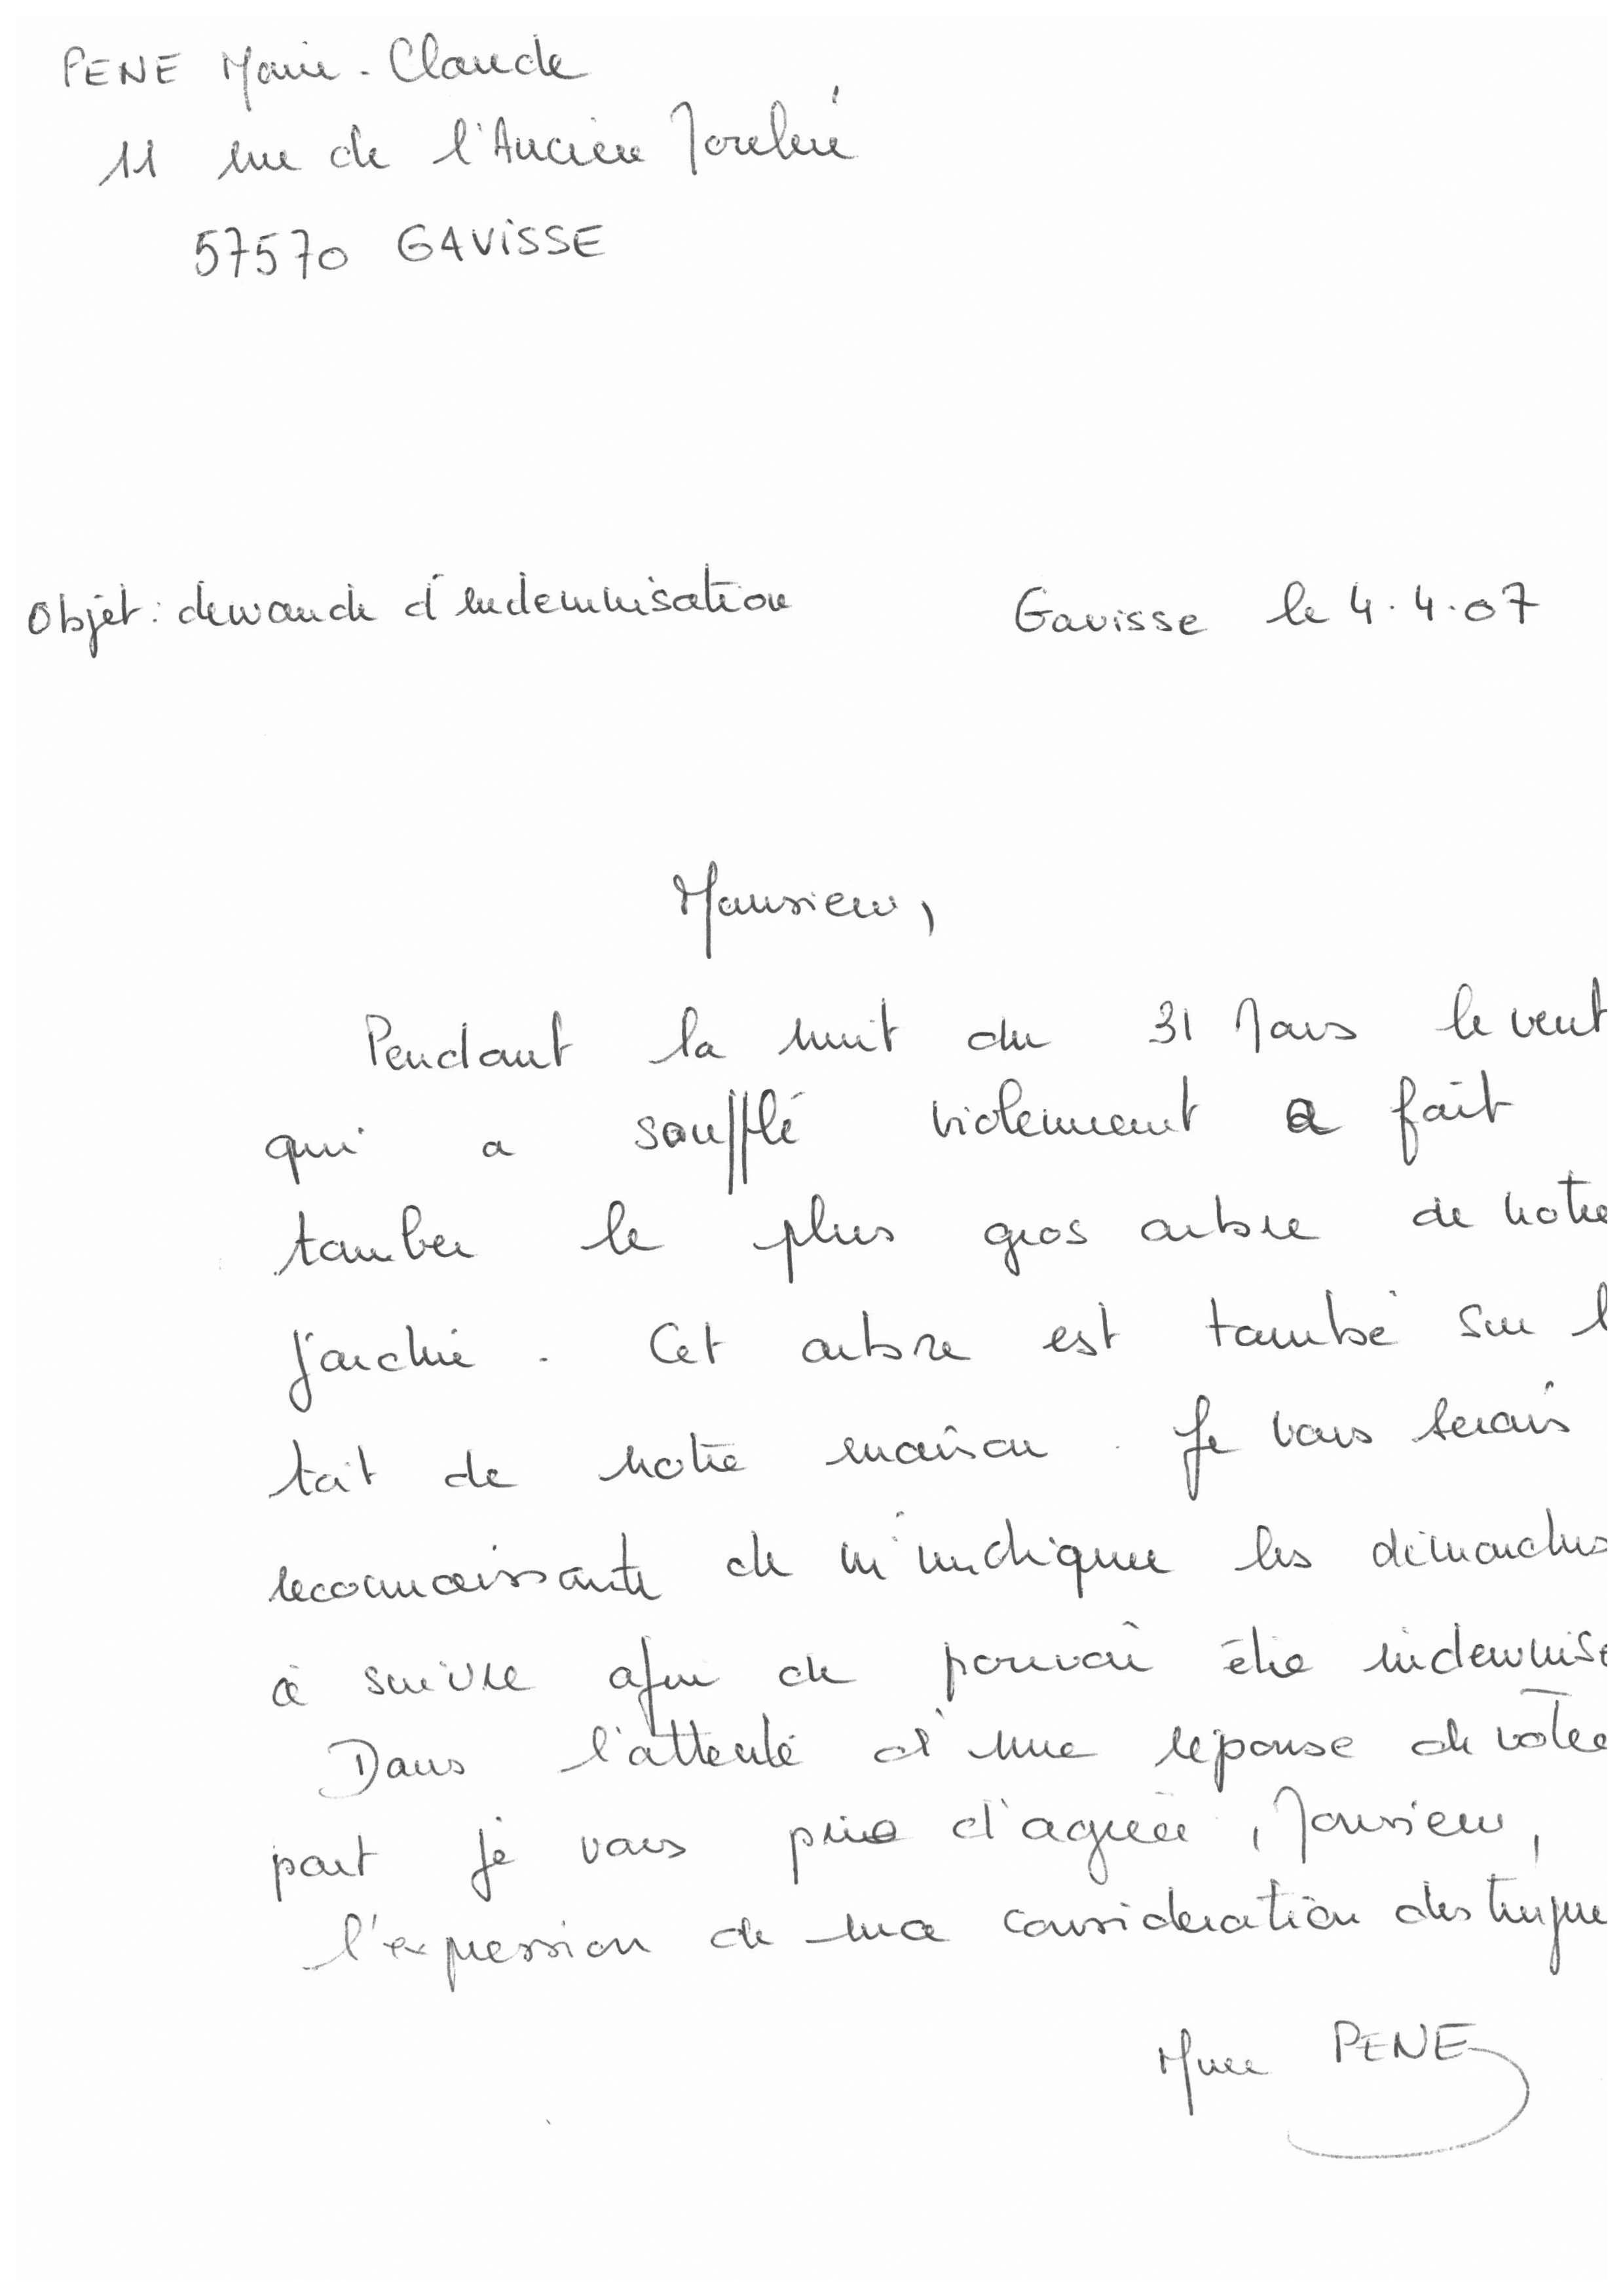 PENE Marie-Claude
11 rue de l'Ancien Moulin
57570 GAVISSE
Objet : demande d'indemnisation
Gavisse le 4.4.07
Monsieur,
Pendant la nuit du 31 Mars le vent
qui a soufflé violemment a fait
tomber le plus gros arbre de notre
jardin. Cet arbre est tombé sur l
toit de notre maison. Je vous serais
reconnaissante de m'indiquer les démarches
à suivre afin de pouvoir être indemnisé
Dans l'attente d'une réponse de votre
part je vous prie d'agréer, Monsieur,
l'expression de ma considération distingue
Mme PENE